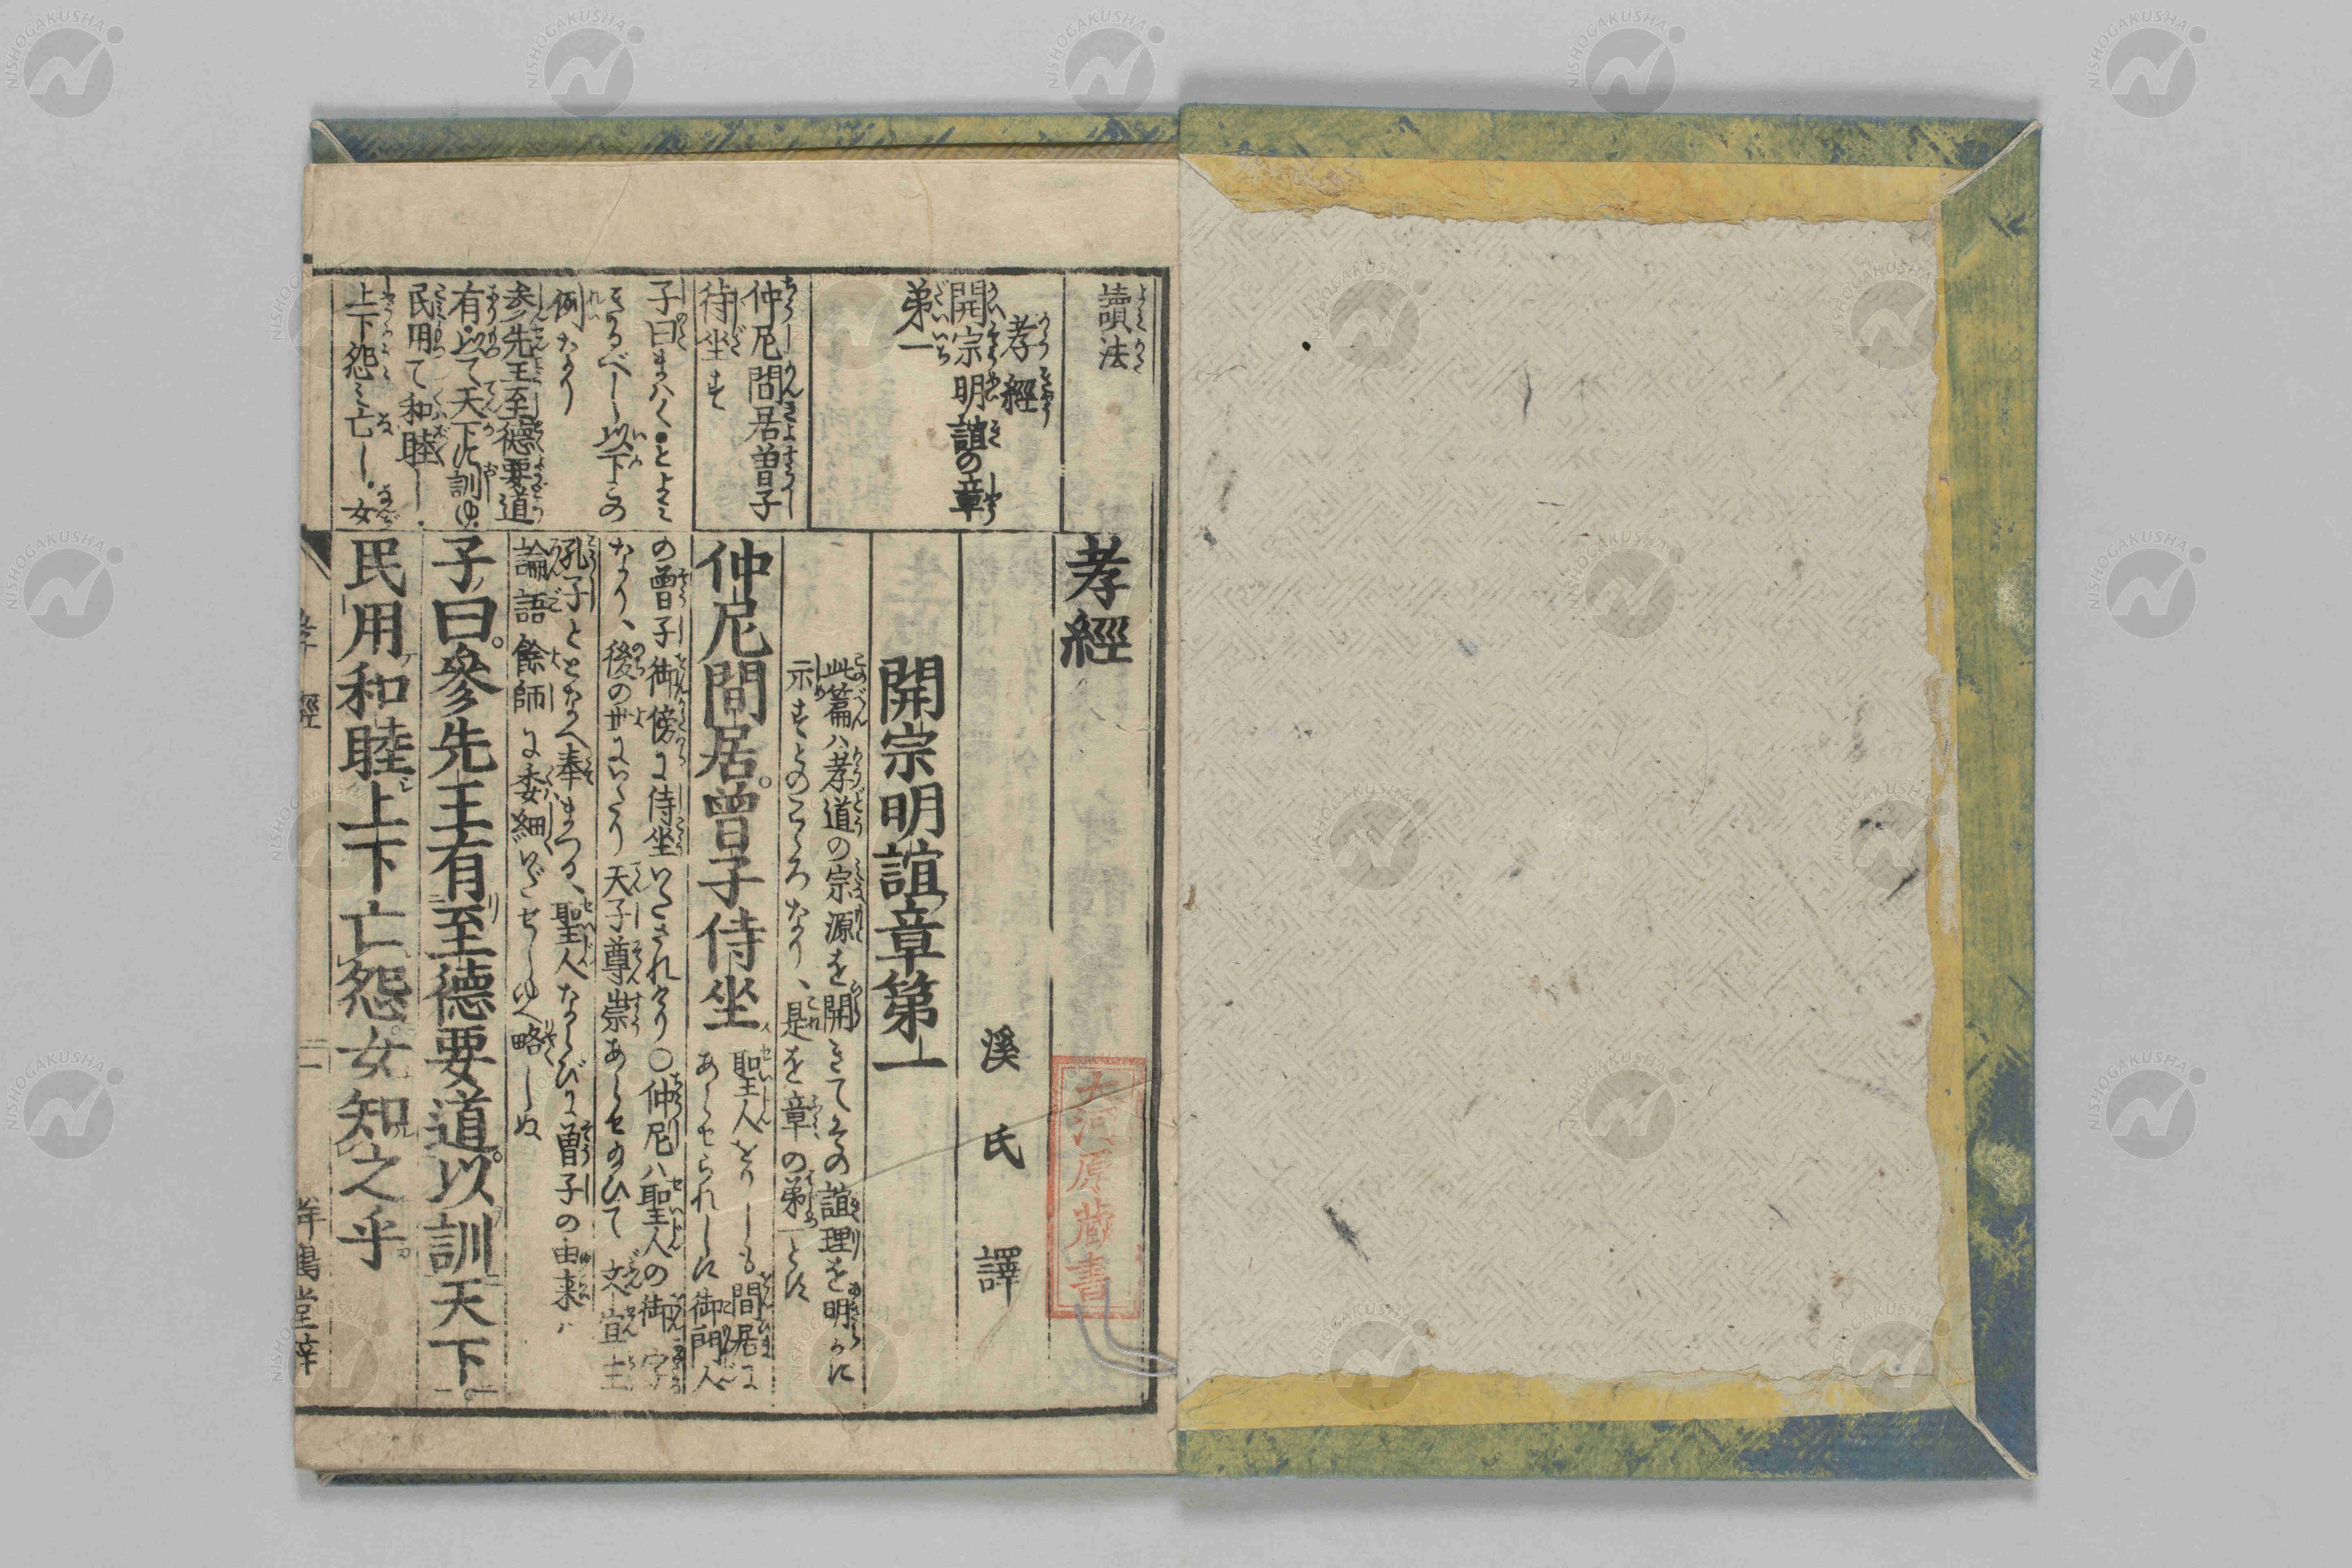 讀法
孝經
開宗明誼の章
第一
仲尼間居曽子
侍坐す
子曰まハく●とよミ
きるべし以下この
例なり
参先王至德要道
有以て天下に訓ゆ
民用て和睦し
上下怨ミ亡し女
孝經
溪氏譯
開宗明誼章第一
此篇ハ孝道の宗源を開きてその誼理を明かに
示すとのこゝろなり、是を章の第一とす
仲尼間居。曾子侍坐
聖人をりしも間居に
あらせられしに御門人
の曽子御傍に侍坐いたされけり○仲尼ハ聖人の御字
なり、後の世にいたり天子尊崇あらせ給ひて文宣王
孔子ととなへ奉まつる、聖人ならびに曽子の由来ハ
論語餘師に委細いだせしゆへ略しぬ
子曰。參先王有至德要道。以訓天下
民用和睦上下亡怨女知之乎
大河原蔵書
孝經
一
NISHOGAKUSHA